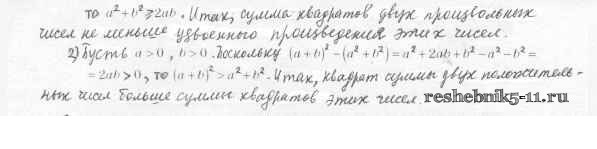 то a² + b² ⩾ 2ab. Итак, сумма квадратов двух произвольных
чисел не меньше удвоенного произведения этих чисел.
2) Пусть a > 0, b > 0. Поскольку (a + b)² − (a² + b²) = a² + 2ab + b² − a² − b² =
= 2ab > 0, то (a + b)² > a² + b². Итак, квадрат суммы двух положитель-
ных чисел больше суммы квадратов этих чисел.
reshebnik5-11.ru